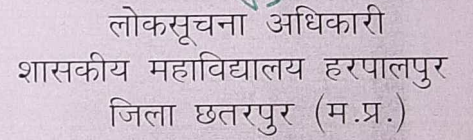 लोकसूचना अधिकारी
शासकीय महाविद्यालय हरपालपुर
जिला छतरपुर (म.प्र.)